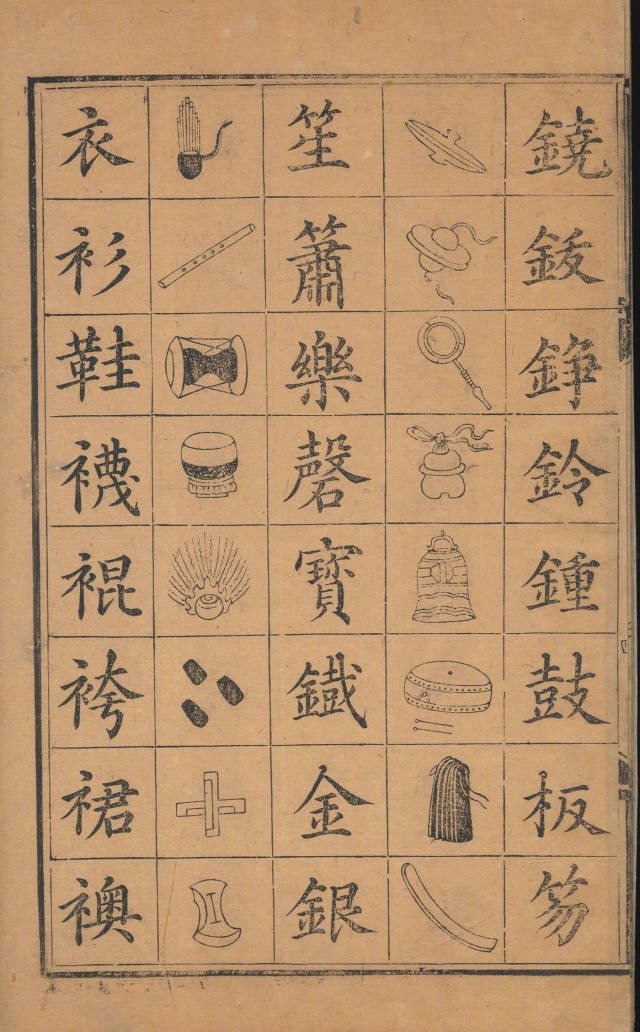 鐃鈸錚鈴鍾鼓板笏
笙簫樂磬寳鐵金銀
衣衫鞋襪裩袴裙襖